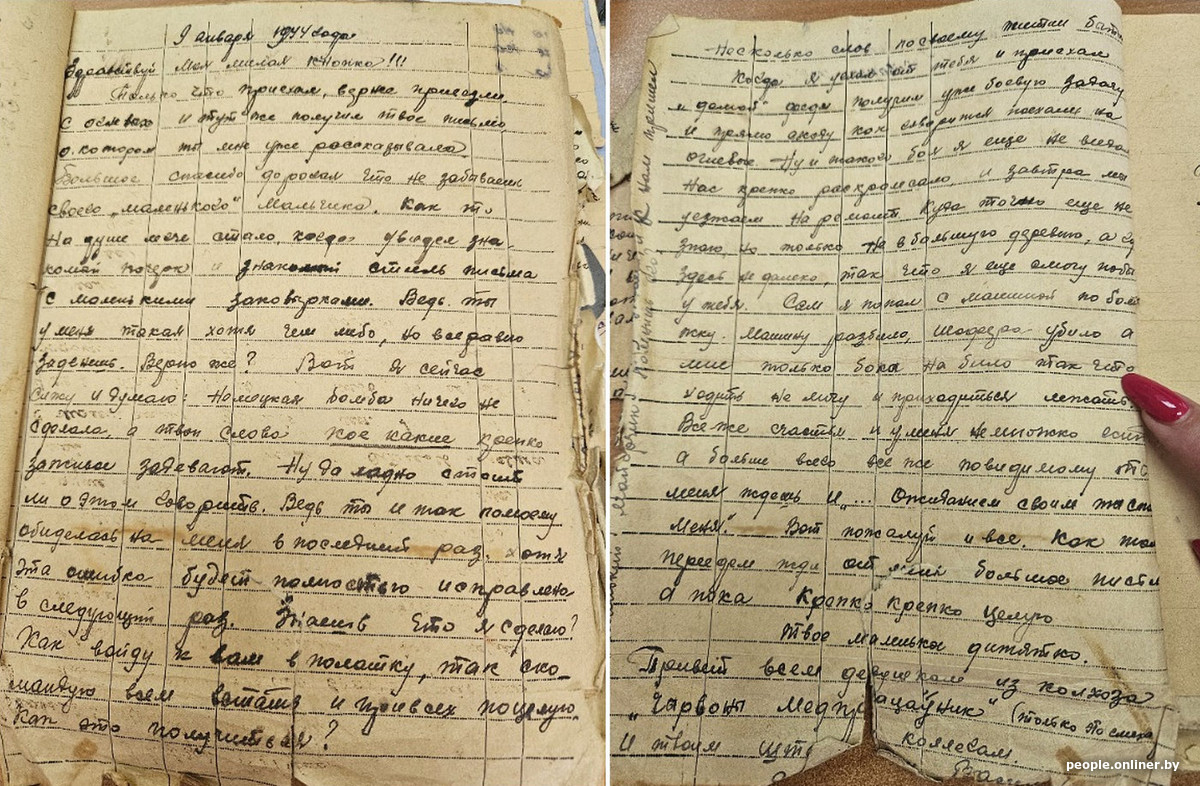 9 января 1944 года
Здравствуй Моя милая Кнопка!!!
Только что приехал, верне приползли
с и тут же получил твое письмо,
о котором ты мне уже рассказывала.
Большое спасибо дорогая что не забываешь
своего „маленького" мальчика. Как то
на душе легче стало, когда увидел зна-
комый почерк и знакомый стиль письма
с маленькими заковырками. Ведь ты
у меня такая хотя чем либо, но всеравно
заденешь. Верно же? Вот я сейчас
Сижу и думаю: Немецкая бомба ничего не
сделала, а твои слова кое какие крепко
задевают. Ну да ладно стоит
ли о этом говорить. Ведь ты и так помоему
обиделась на меня в последний раз, хотя
эта ошибка будет полностью исправлена
в следующий раз. Знаешь что я сделаю?
Как войду к вам в палатку, так ско-
мандую всем встать и при всех поцелую.
Как это получиться?
Несколько слов посвоему житии
Когда я уехал от тебя и приехал
и домой" сегодня получил уже боевую задачу
и прямо сходу как говорится поехали на
огневые. Ну и такого боя я еще не видел
Нас крепко раскромсало, и завтра мы
уезжаем на ремонт. Куда точно еще не
знаю, но только не в большую деревню, а
здесь не далеко, так что я еще смогу
у тебя. Сам я попал с машиной
Машину разбило, шофера убило а
мне только бока на било так что
ходить не могу и приходиться лежать.
Всё же счастья и у меня немножко есть
а больше всего все же повидимому
меня ждешь и „... Ожиданием своим
меня." Вот пожалуй и все. Как
переедем жди от меня большое
а пока Крепко крепко целую
твое маленько дитятко.
Привет всем девушкам из колхоза
„Чарвоны Медпрацаўник" (только
и твоим
коллегам.
people.onliner.by